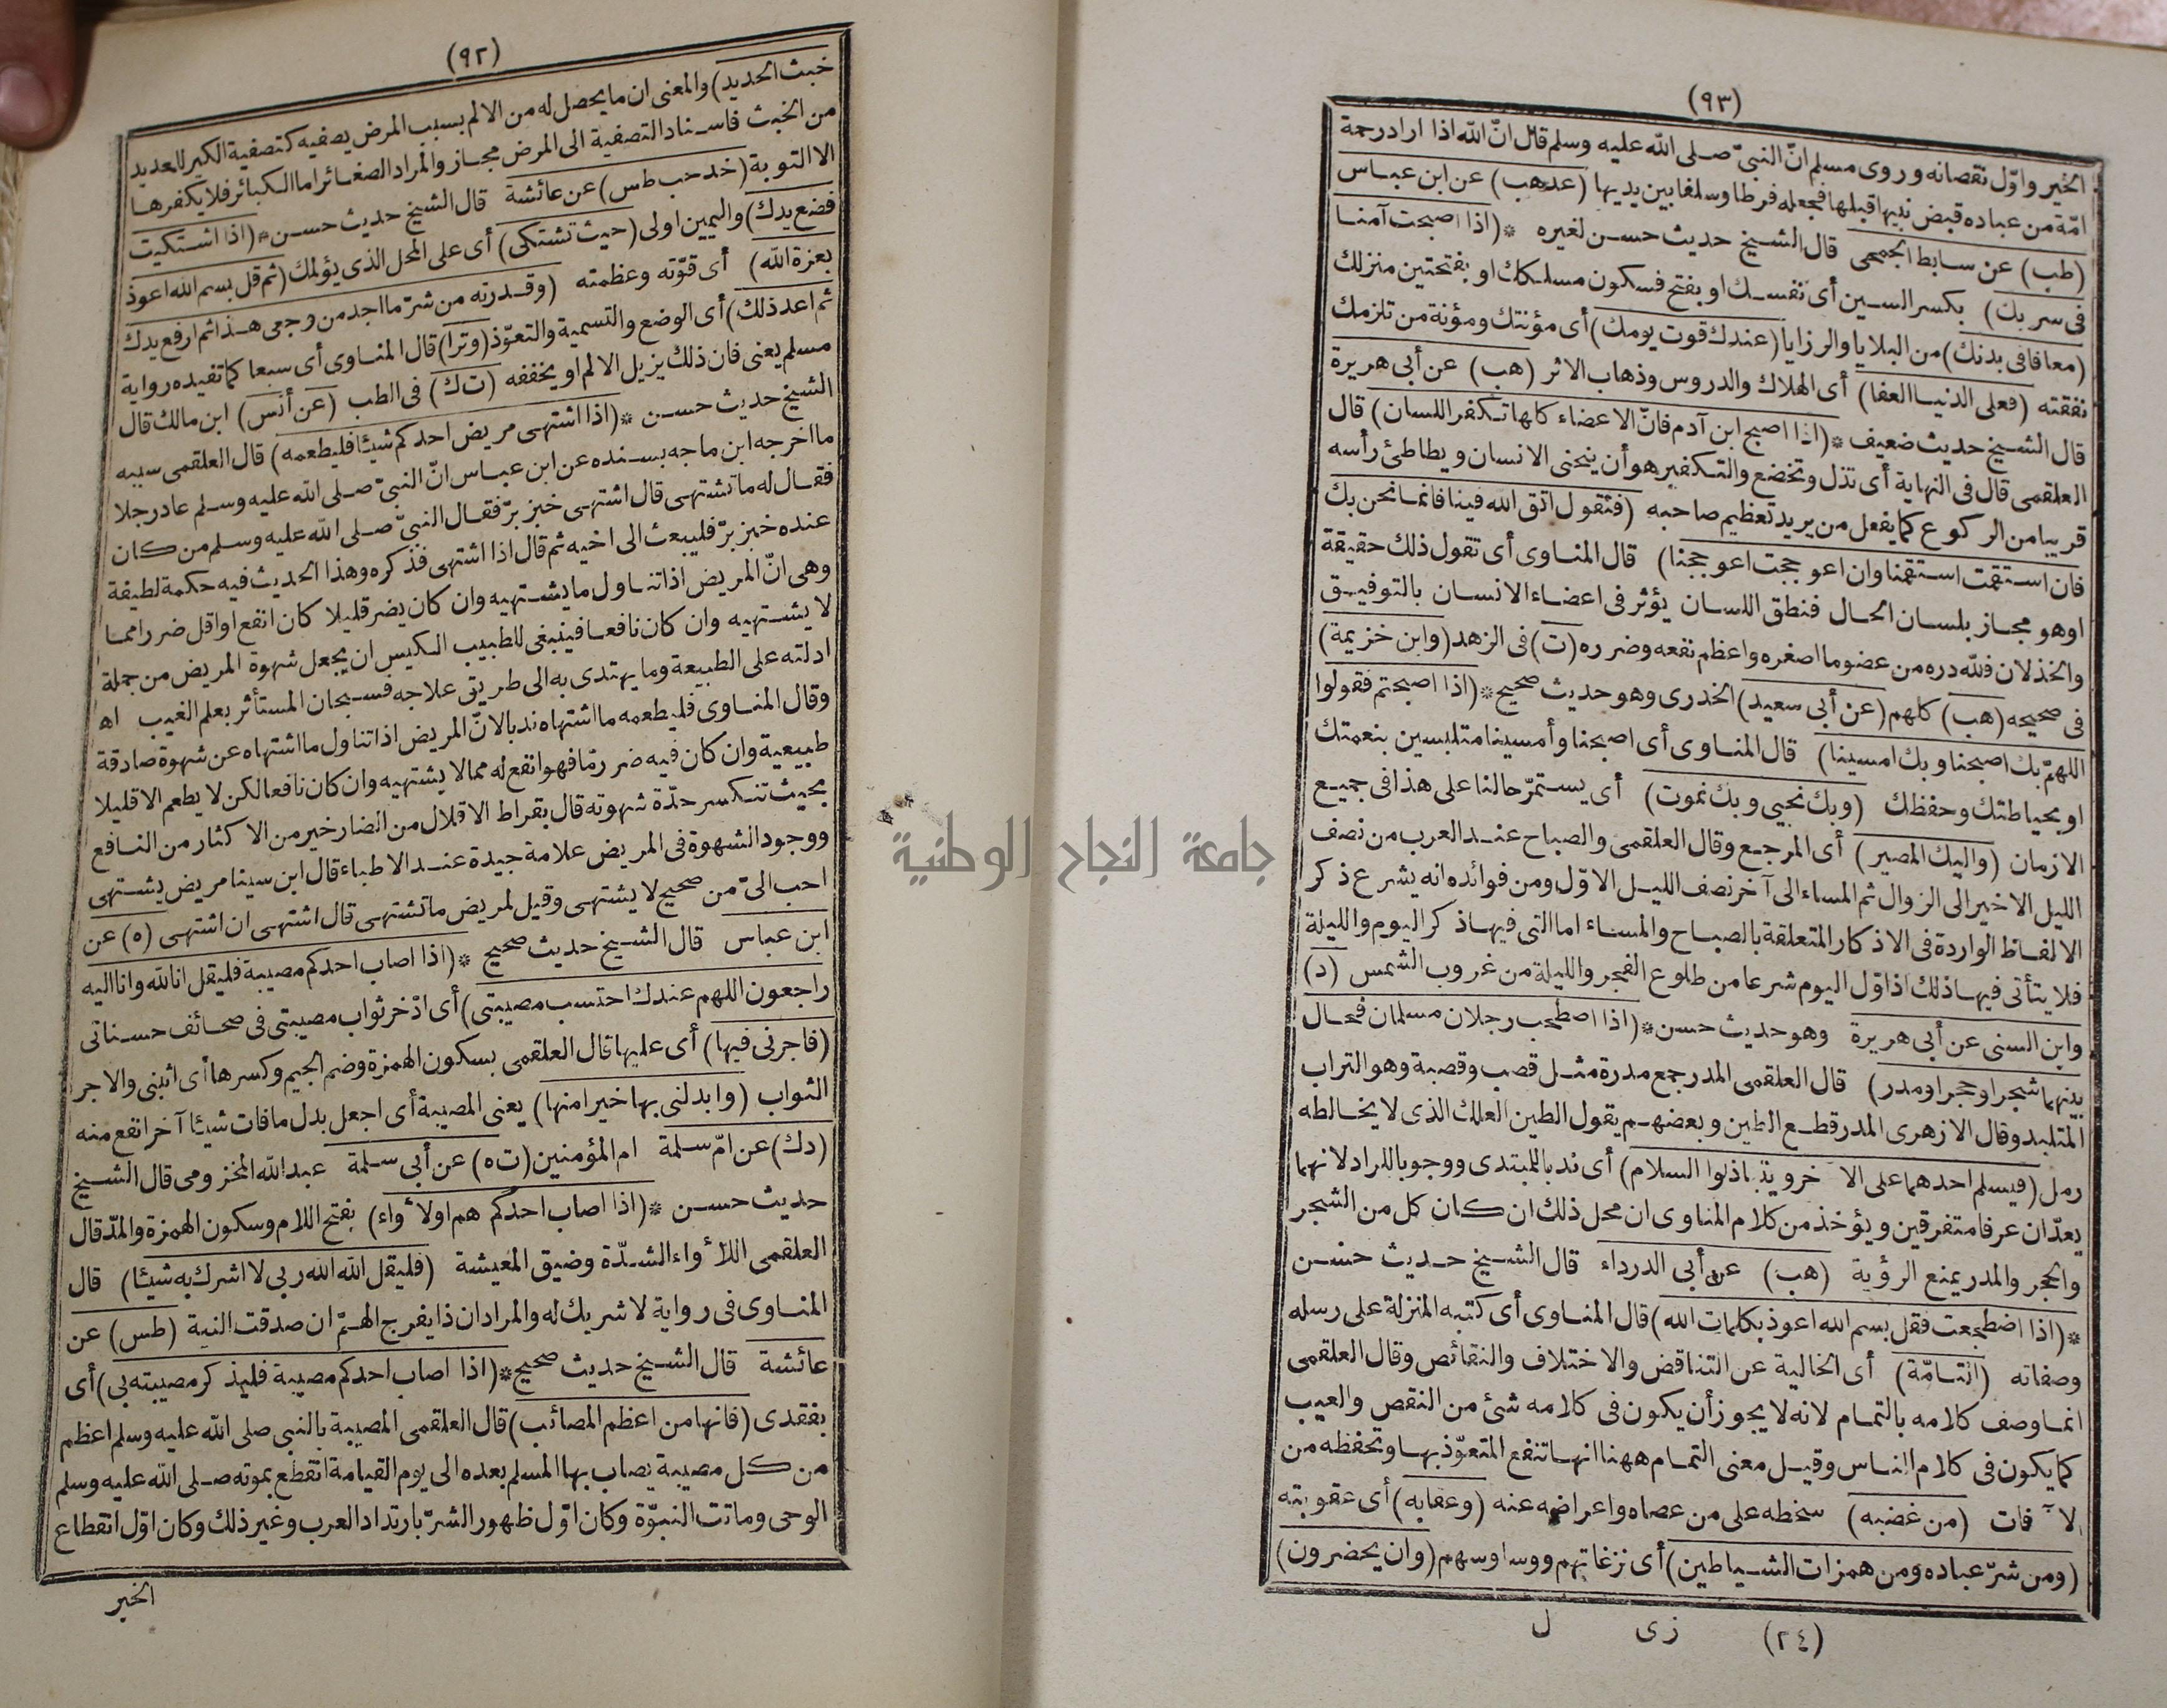 (٩٢)
خبث الحديد) والمعنى ان ما يحصل له من الالم بسبب المرض يصفيه كتصفية الكير للحديد
من الخبث فاسناد التصفية الى المرض مجاز والمراد الصغائر اما الكبائر فلا يكفرها
الا التوبة (خد حب طس) عن عائشة قال الشيخ حديث حسن * (اذا اشتكيت
فضع يدك) واليمين اولى (حيث تشتكى) أى على المحل الذى يؤلمك (ثم قل بسم الله اعوذ
بعزة الله) أى قوّته وعظمته (وقدرته من شرّ ما اجد من وجعى هذا ثم ارفع يدك
ثم اعد ذلك) أى الوضع والتسمية والتعوّذ (وترا) قال المناوى أى سبعا كما تفيده رواية
مسلم يعنى فان ذلك يزيل الالم او يخففه (ت ك) فى الطب (عن أنس) ابن مالك قال
الشيخ حديث حسن * (اذا اشتهى مريض احدكم شيئا فليطعمه) قال العلقمى سببه
ما اخرجه ابن ماجه بسنده عن ابن عباس انّ النبىّ صلى الله عليه وسلم عاد رجلا
فقال له ما تشتهى قال اشتهى خبز برّ فقال النبىّ صلى الله عليه وسلم من كان
عنده خبز برّ فليبعث الى اخيه ثم قال اذا اشتهى فذكره وهذا الحديث فيه حكمة لطيفة
وهى انّ المريض اذا تناول ما يشتهيه وان كان يضر قليلا كان انفع او اقل ضررا مما
لا يشتهيه وان كان نافعا فينبغى للطبيب الكيس ان يجعل شهوة المريض من جملة
ادلته على الطبيعة وما يهتدى به الى طريق علاجه فسبحان المستأثر بعلم الغيب اه
وقال المناوى فليطعمه ما اشتهاه ندبا لانّ المريض اذا تناول ما اشتهاه عن شهوة صادقة
طبيعية وان كان فيه ضرر مّا فهو انفع له مما لا يشتهيه وان كان نافعا لكن لا يطعم الا قليلا
بحيث تنكسر حدّة شهوته قال بقراط الاقلال من الضار خير من الاكثار من النافع
ووجود الشهوة فى المريض علامة جيدة عند الاطباء قال ابن سينا مريض يشتهى
احب الىّ من صحيح لا يشتهى وقيل لمريض ما تشتهى قال اشتهى ان اشتهى (ه) عن
ابن عباس قال الشيخ حديث صحيح * (اذا اصاب احدكم مصيبة فليقل انا لله وانا اليه
راجعون اللهم عندك احتسب مصيبتى) أى ادّخر ثواب مصيبتى فى صحائف حسناتى
(فاجرنى فيها) أى عليها قال العلقمى بسكون الهمزة وضم الجيم وكسرها أى اثبنى والاجر
الثواب (وابدلنى بها خيرا منها) يعنى المصيبة أى اجعل بدل ما فات شيئا آخر انفع منه
(د ك) عن امّ سلمة ام المؤمنين (ت ه) عن أبى سلمة عبد الله المخزومى قال الشيخ
حديث حسن * (اذا اصاب احدكم هم او لأواء) بفتح اللام وسكون الهمزة والمدّ قال
العلقمى اللأواء الشدّة وضيق المعيشة (فليقل الله الله ربى لا اشرك به شيئا) قال
المناوى فى رواية لا شريك له والمراد ان ذا يفرج الهمّ ان صدقت النية (طس) عن
عائشة قال الشيخ حديث صحيح * (اذا اصاب احدكم مصيبة فليذكر مصيبته بى) أى
بفقدى (فانها من اعظم المصائب) قال العلقمى المصيبة بالنبى صلى الله عليه وسلم اعظم
من كل مصيبة يصاب بها المسلم بعده الى يوم القيامة انقطع بموته صلى الله عليه وسلم
الوحى وماتت النبوّة وكان اوّل ظهور الشرّ بارتداد العرب وغير ذلك وكان اوّل انقطاع
الخير
(٩٣)
الخير واوّل نقصانه وروى مسلم انّ النبىّ صلى الله عليه وسلم قال انّ الله اذا اراد رحمة
امّة من عباده قبض نبيها قبلها فجعله فرطا وسلفا بين يديها (عد هب) عن ابن عباس
(طب) عن سابط الجمحى قال الشيخ حديث حسن لغيره * (اذا اصبحت آمنا
فى سربك) بكسر السين أى نفسك او بفتح فسكون مسلكك او بفتحتين منزلك
(معافا فى بدنك) من البلايا والرزايا (عندك قوت يومك) أى مؤنتك ومؤنة من تلزمك
نفقته (فعلى الدنيا العفا) أى الهلاك والدروس وذهاب الاثر (هب) عن أبى هريرة
قال الشيخ حديث ضعيف * (اذا اصبح ابن آدم فانّ الاعضاء كلها تكفر اللسان) قال
العلقمى قال فى النهاية أى تذل وتخضع والتكفير هو أن ينحنى الانسان ويطاطئ رأسه
قريبا من الركوع كما يفعل من يريد تعظيم صاحبه (فتقول اتق الله فينا فانما نحن بك
فان استقمت استقمنا وان اعوججت اعوججنا) قال المناوى أى تقول ذلك حقيقة
او هو مجاز بلسان الحال فنطق اللسان يؤثر فى اعضاء الانسان بالتوفيق
والخذلان فلله دره من عضو ما اصغره واعظم نفعه وضرره (ت) فى الزهد (وابن خزيمة)
فى صحيحه (هب) كلهم (عن أبى سعيد) الخدرى وهو حديث صحيح * (اذا اصبحتم فقولوا
اللهمّ بك اصبحنا وبك امسينا) قال المناوى أى اصبحنا وأمسينا متلبسين بنعمتك
او بحياطتك وحفظك (وبك نحيى وبك نموت) أى يستمرّ حالنا على هذا فى جميع
الازمان (واليك المصير) أى المرجع وقال العلقمى والصباح عند العرب من نصف
الليل الاخير الى الزوال ثم المساء الى آخر نصف الليل الاوّل ومن فوائده انه يشرع ذكر
الالفاظ الواردة فى الاذكار المتعلقة بالصباح والمساء اما التى فيها ذكر اليوم والليلة
فلا يتأتى فيها ذلك اذ اوّل اليوم شرعا من طلوع الفجر والليلة من غروب الشمس (د)
وابن السنى عن أبى هريرة وهو حديث حسن * (اذا اصطحب رجلان مسلمان فحال
بينهما شجر او حجر او مدر) قال العلقمى المدر جمع مدرة مثل قصب وقصبة وهو التراب
المتلبد وقال الازهرى المدر قطع الطين وبعضهم يقول الطين العلك الذى لا يخالطه
رمل (فيسلم احدهما على الآخر ويتباذلوا السلام) أى ندبا للمبتدى ووجوبا للراد لانهما
يعدّان عرفا متفرقين ويؤخذ من كلام المناوى ان محل ذلك ان كان كل من الشجر
والحجر والمدر يمنع الرؤية (هب) عن أبى الدرداء قال الشيخ حديث حسن
* (اذا اضطجعت فقل بسم الله اعوذ بكلمات الله) قال المناوى أى كتبه المنزلة على رسله
وصفاته (التامّة) أى الخالية عن التناقض والاختلاف والنقائص وقال العلقمى
انما وصف كلامه بالتمام لانه لا يجوز أن يكون فى كلامه شئ من النقص والعيب
كما يكون فى كلام الناس وقيل معنى التمام ههنا انها تنفع المتعوّذ بها وتحفظه من
الآفات (من غضبه) سخطه على من عصاه واعراضه عنه (وعقابه) أى عقوبته
(ومن شرّ عباده ومن همزات الشياطين) أى نزغاتهم ووساوسهم (وان يحضرون)
(٢٤) زى ل
جامعة النجاح الوطنية